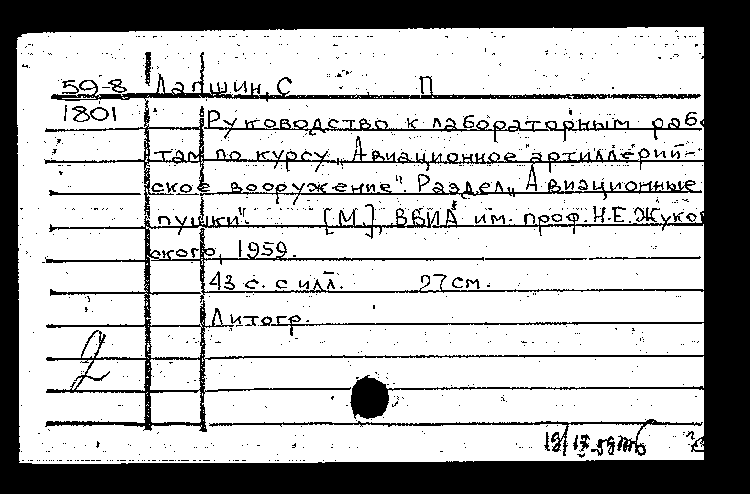 59-8 Лапшин, С П
1801
Руководство к лабораторным раб
там по курсу „Авиационное артиллерий-
ское вооружение". Раздел „Авиационные
пушки". [М.], ВВИА им. проф. Н.Е. Жуков
ского, 1959.
43 с. с илл. 27 см.
Литогр.
2